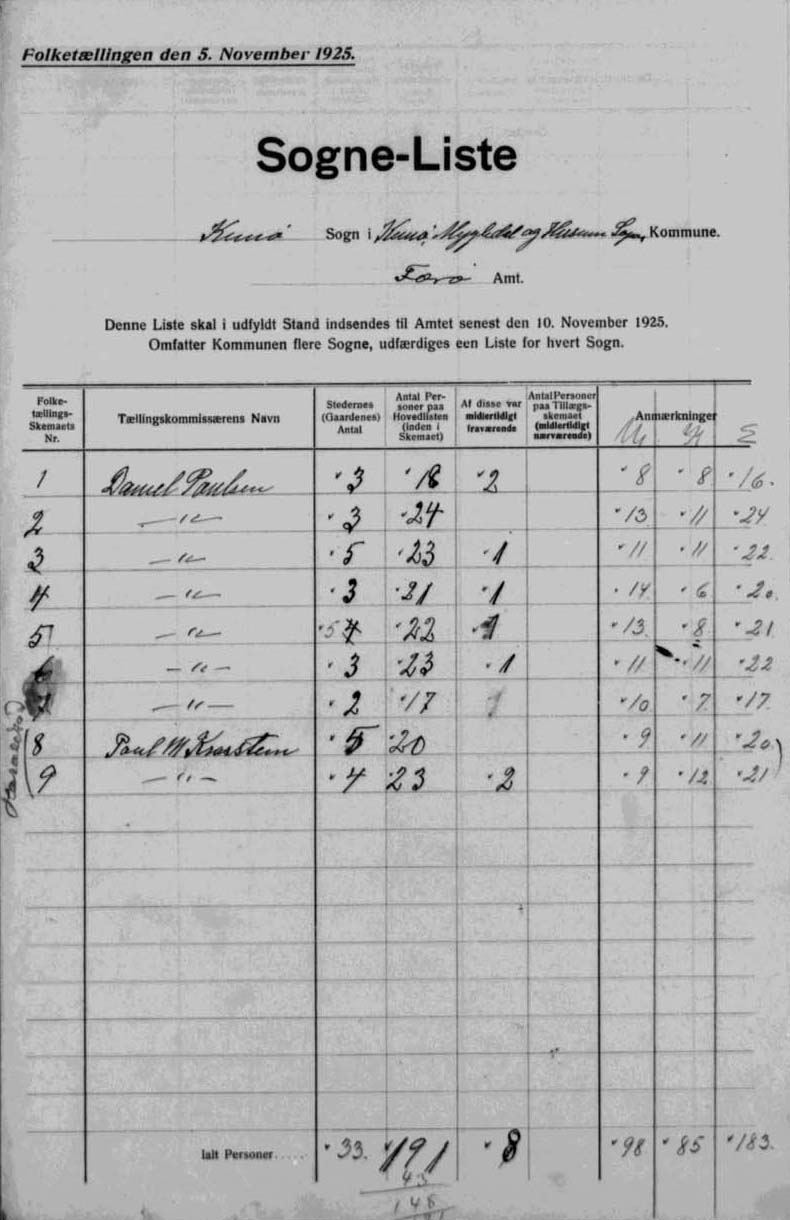 Folketællingen den 5. November 1925.
Sogne-Liste
Kunø Sogn i Kunø, Mygledal og Husum Sogn, Kommune.
Færø Amt.
Denne Liste skal i udfyldt Stand indsendes til Amtet senest den 10. November 1925.
Omfatter Kommunen flere Sogne, udfærdiges een Liste for hvert Sogn.
Folke-tællings-Skemaets Nr. Tællingskommissærens Navn Stedernes (Gaardenes) Antal Antal Personer paa Hovedlisten (inden i Skemaet) Af disse var midlertidigt fraværende Antal Personer paa Tillægs-skemaet (midlertidigt nærværende) Anmærkninger
M K Σ
1 Daniel Paulsen 3 18 2 8 8 16.
2 —"— 3 24 13 11 24
3 —"— 5 23 1 11 11 22.
4 —"— 3 21 1 14 6 20.
5 —"— 5 4 22 1 13 8 21
6 —"— 3 23 1 11 11 22
7 —"— 2 17 10 7 17.
8 Paul M 5 20 9 11 20
9 —"— 4 23 2 9 12 21
Ialt Personer..... 33. 191 8 98 85 183.
43
148